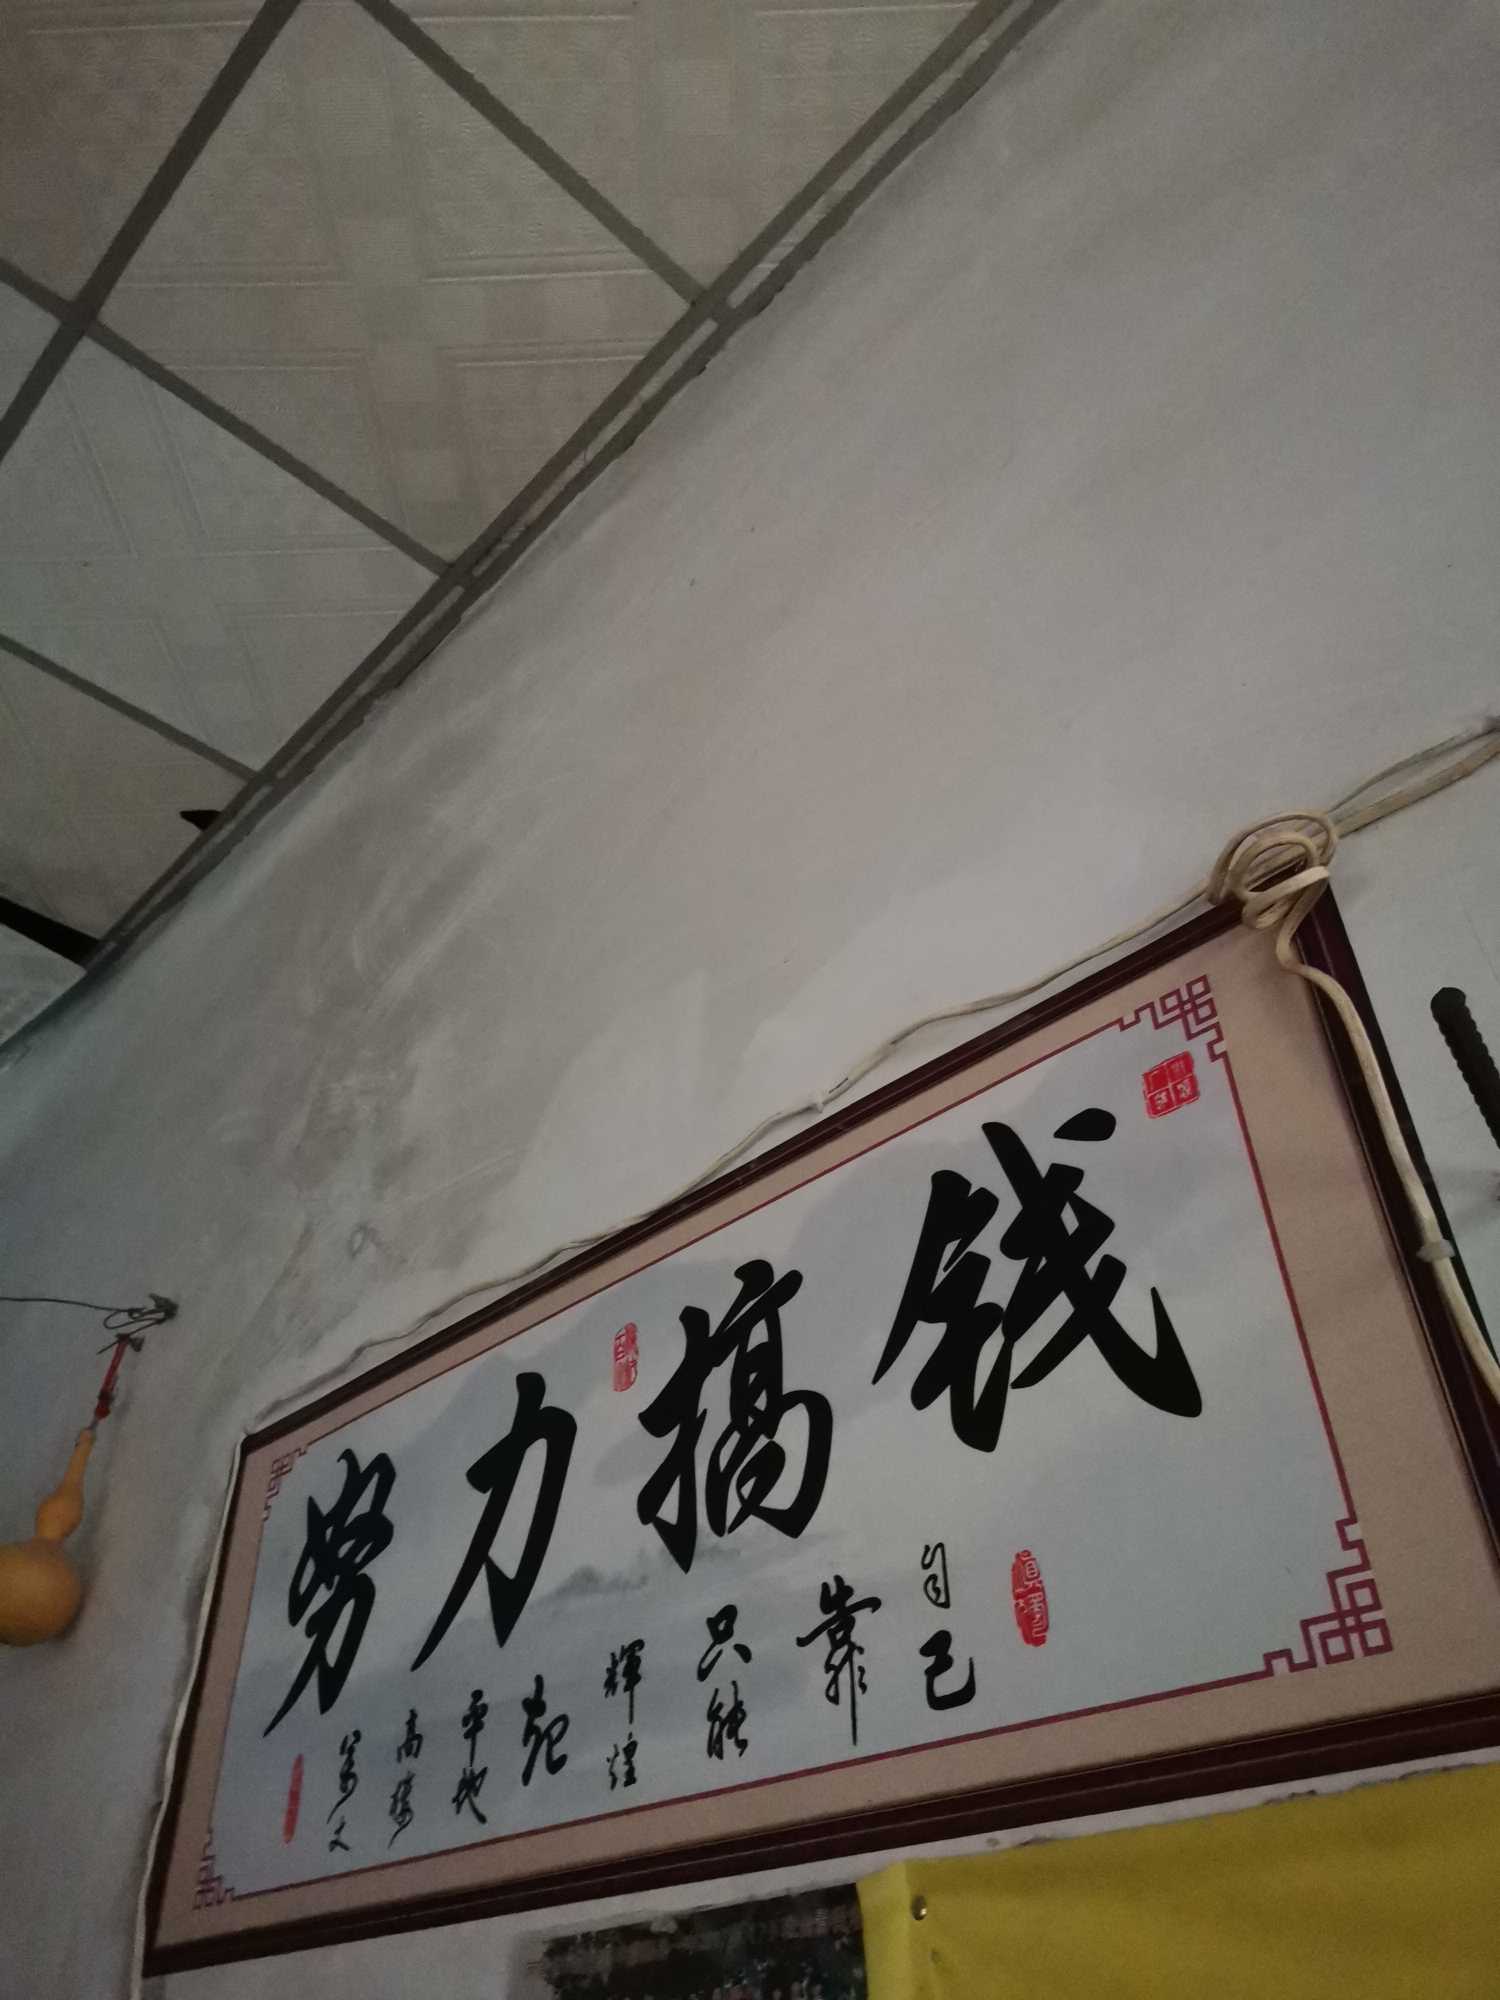 努力搞钱
万丈高楼平地起
辉煌只能靠自己